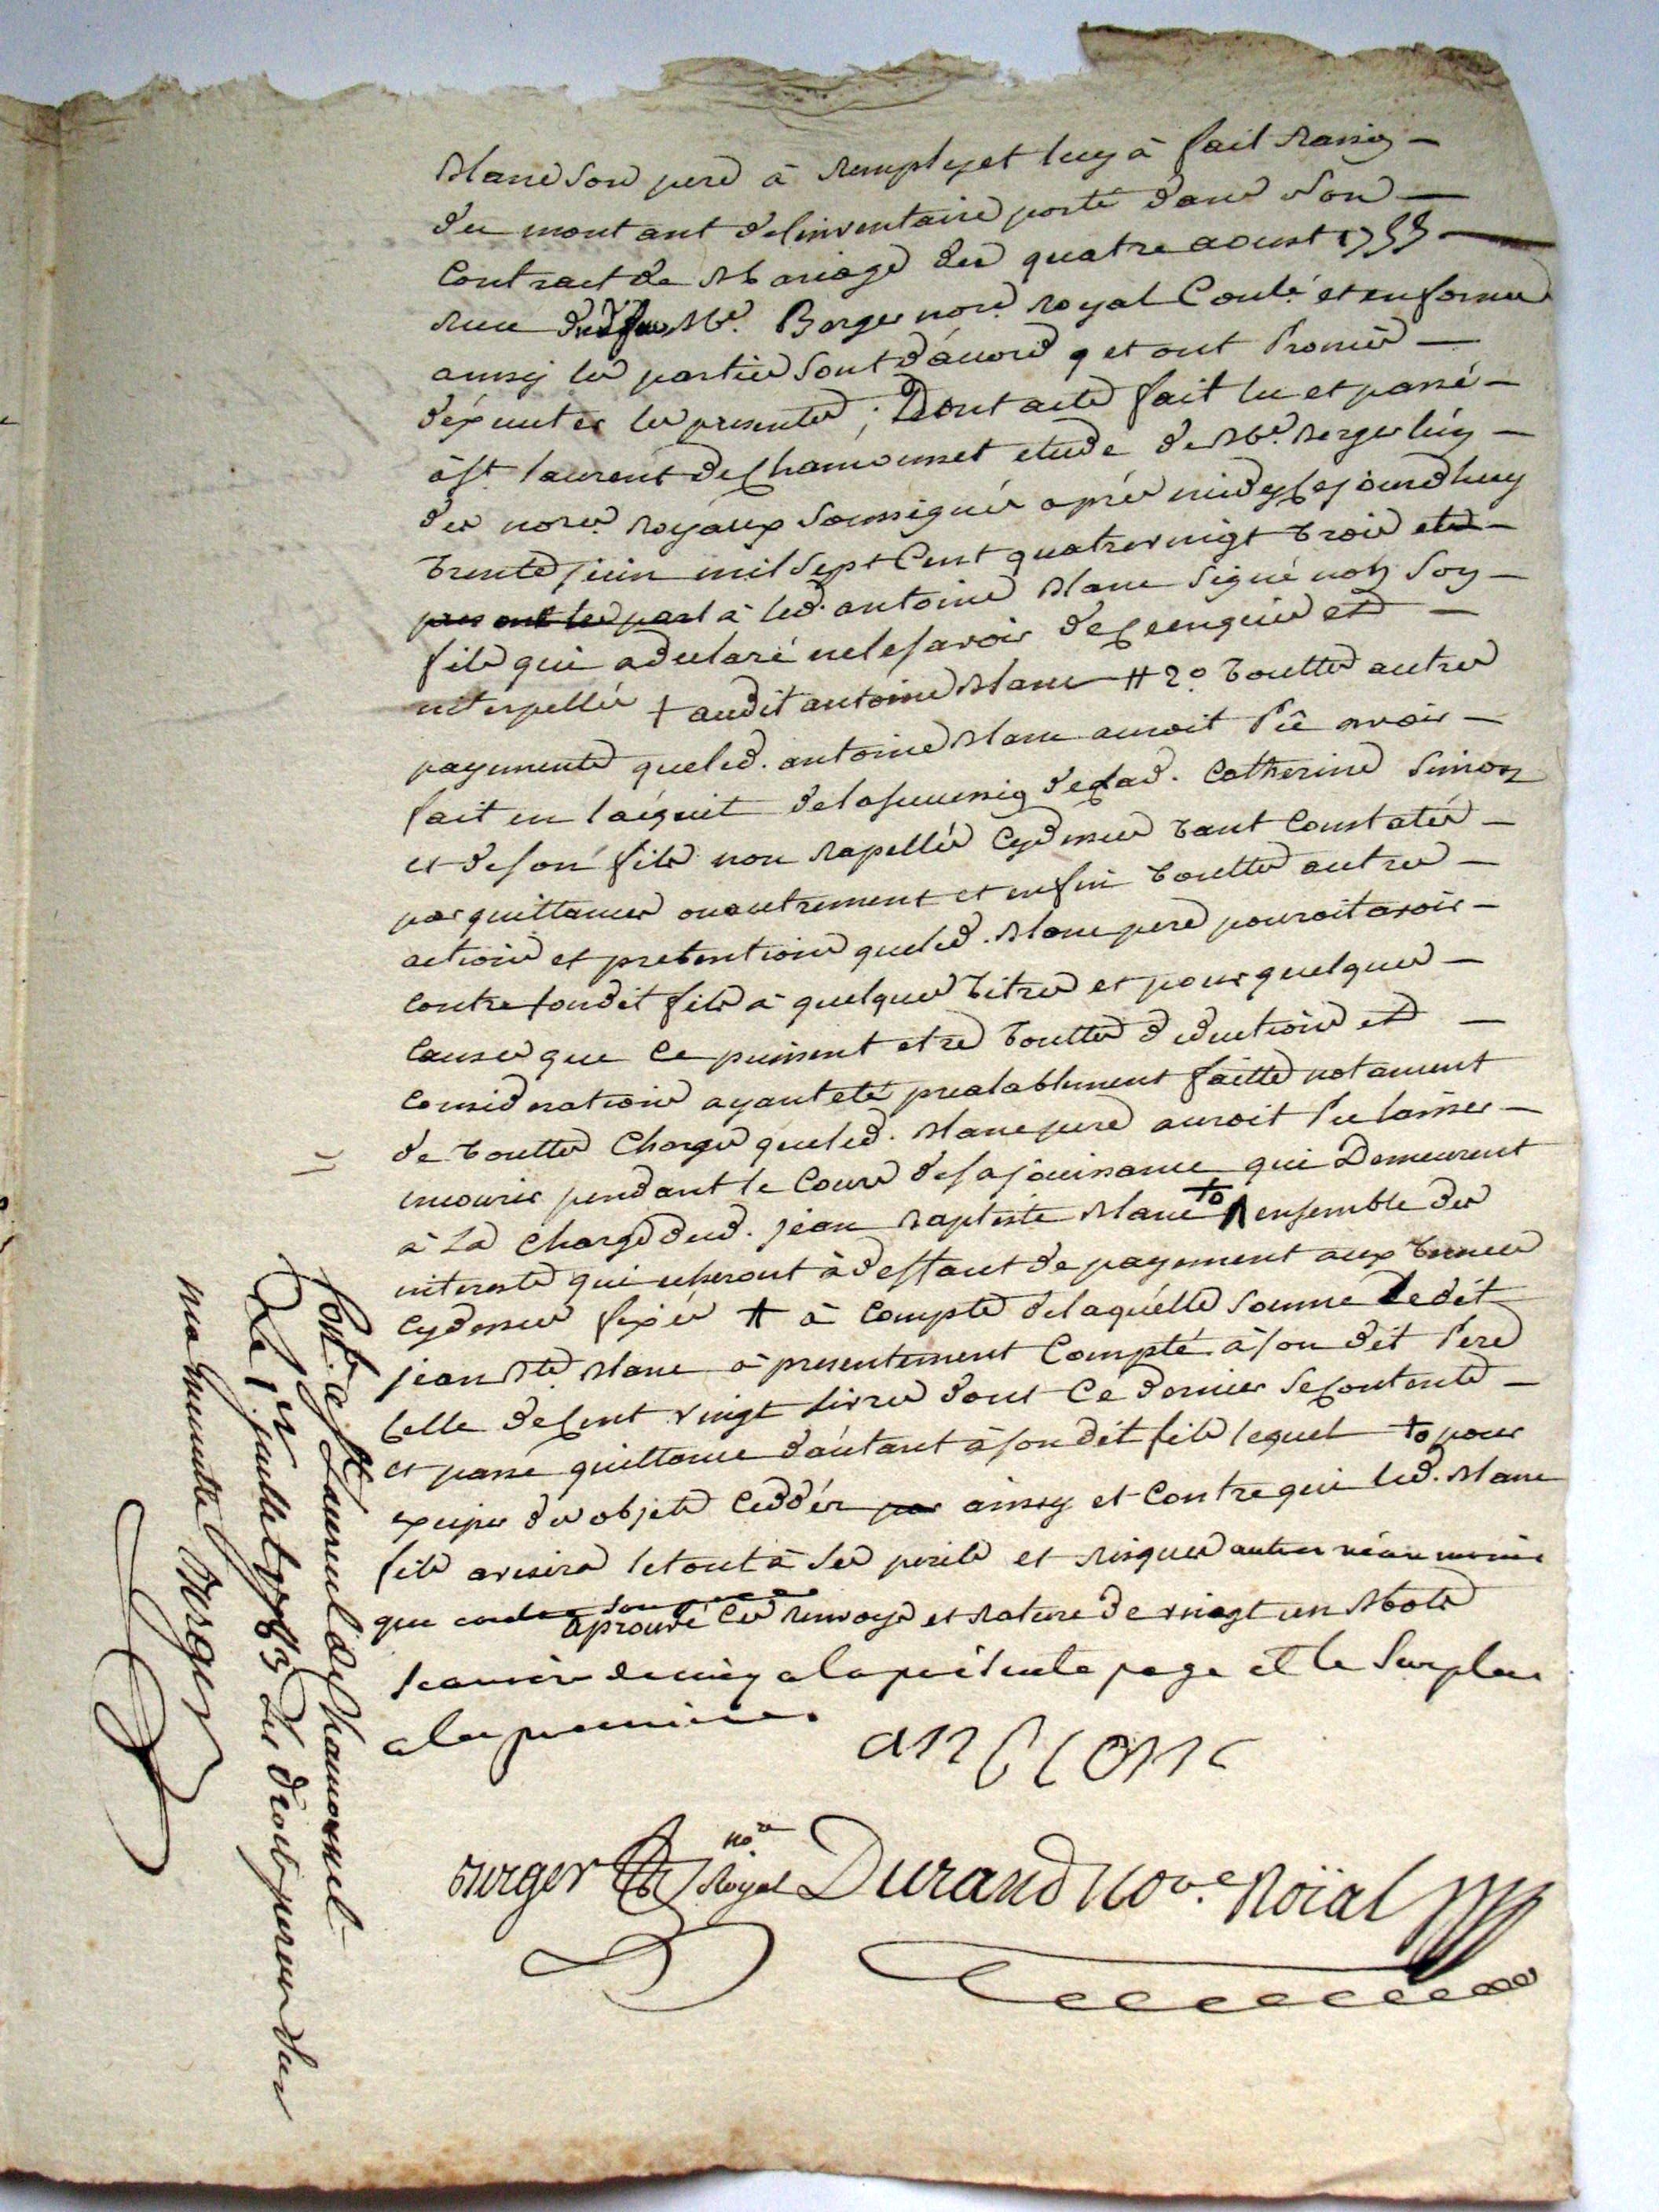 Blanc Son pere à remply et luy à fait raison
du montant delinventaire porté dans Son
Contract de Mariage du quatre aoust 1755
reçu Me. Berger nore. royal Coulé et en forme
ainsy les parties Sont d'acord et ont Promis
d'éxecuter les presentes; Dont acte fait lu et passé
à St. laurent de Chamousset etude de Me. Berger l'un
des nores. royaux Soussignés aprés midy cejourdhuy
trente juin mil Sept Cent quatrevingt trois et
à led. antoine Blanc Signé non Son
fils qui a declaré ne le savoir de ce enquis et
interpellés + audit antoine Blanc # 2o. touttes autres
payements que led. antoine Blanc auroit Pû avoir
fait en l'acquit de la sucession de lad. Catherine Simon
et de son fils non rapellés Cydessus tant Constatés
par quittances ou autrement et enfin touttes autres
actions et pretentions que led. Blanc pere pouroit avoir
contre son dit fils à quelques titres et pour quelques
causes que Ce puissent etre touttes deductions et
Considerations ayant eté prealablement faittes notament
de touttes Charges que led. Blanc pere auroit Pu laisser
encourir pendant le Cours de sa joüissance qui Demeurent
à La charge dud. jean Baptiste Blanc to ensemble des
interests qui à deffaut de payement aux termes
Cydessus fixés # à Compte de laquélle Somme Ledit
jean Bte. Blanc à presentement Compté à son dit Pere
Celle de Cent vingt livres dont Ce dernier Se Contente
et passe quittance d'autant à son dit fils lequel to pour
exciper des objets Ceddés par ainsy et Contre qui led. Blanc
fils avisera le tout à Ses perils et risques autres néanmoins
que contre Son pere
aprouvé Les renvoys et rature de vingt un Mots
a la presente page et le Surplus
a la premiere.
an blanc
Berger nore Royal Durand Nore. Roïal
Conté. a St. Laurent de Chamousset
Le 1er juillet 1783 les droits perçus sur
ma minutte Berger